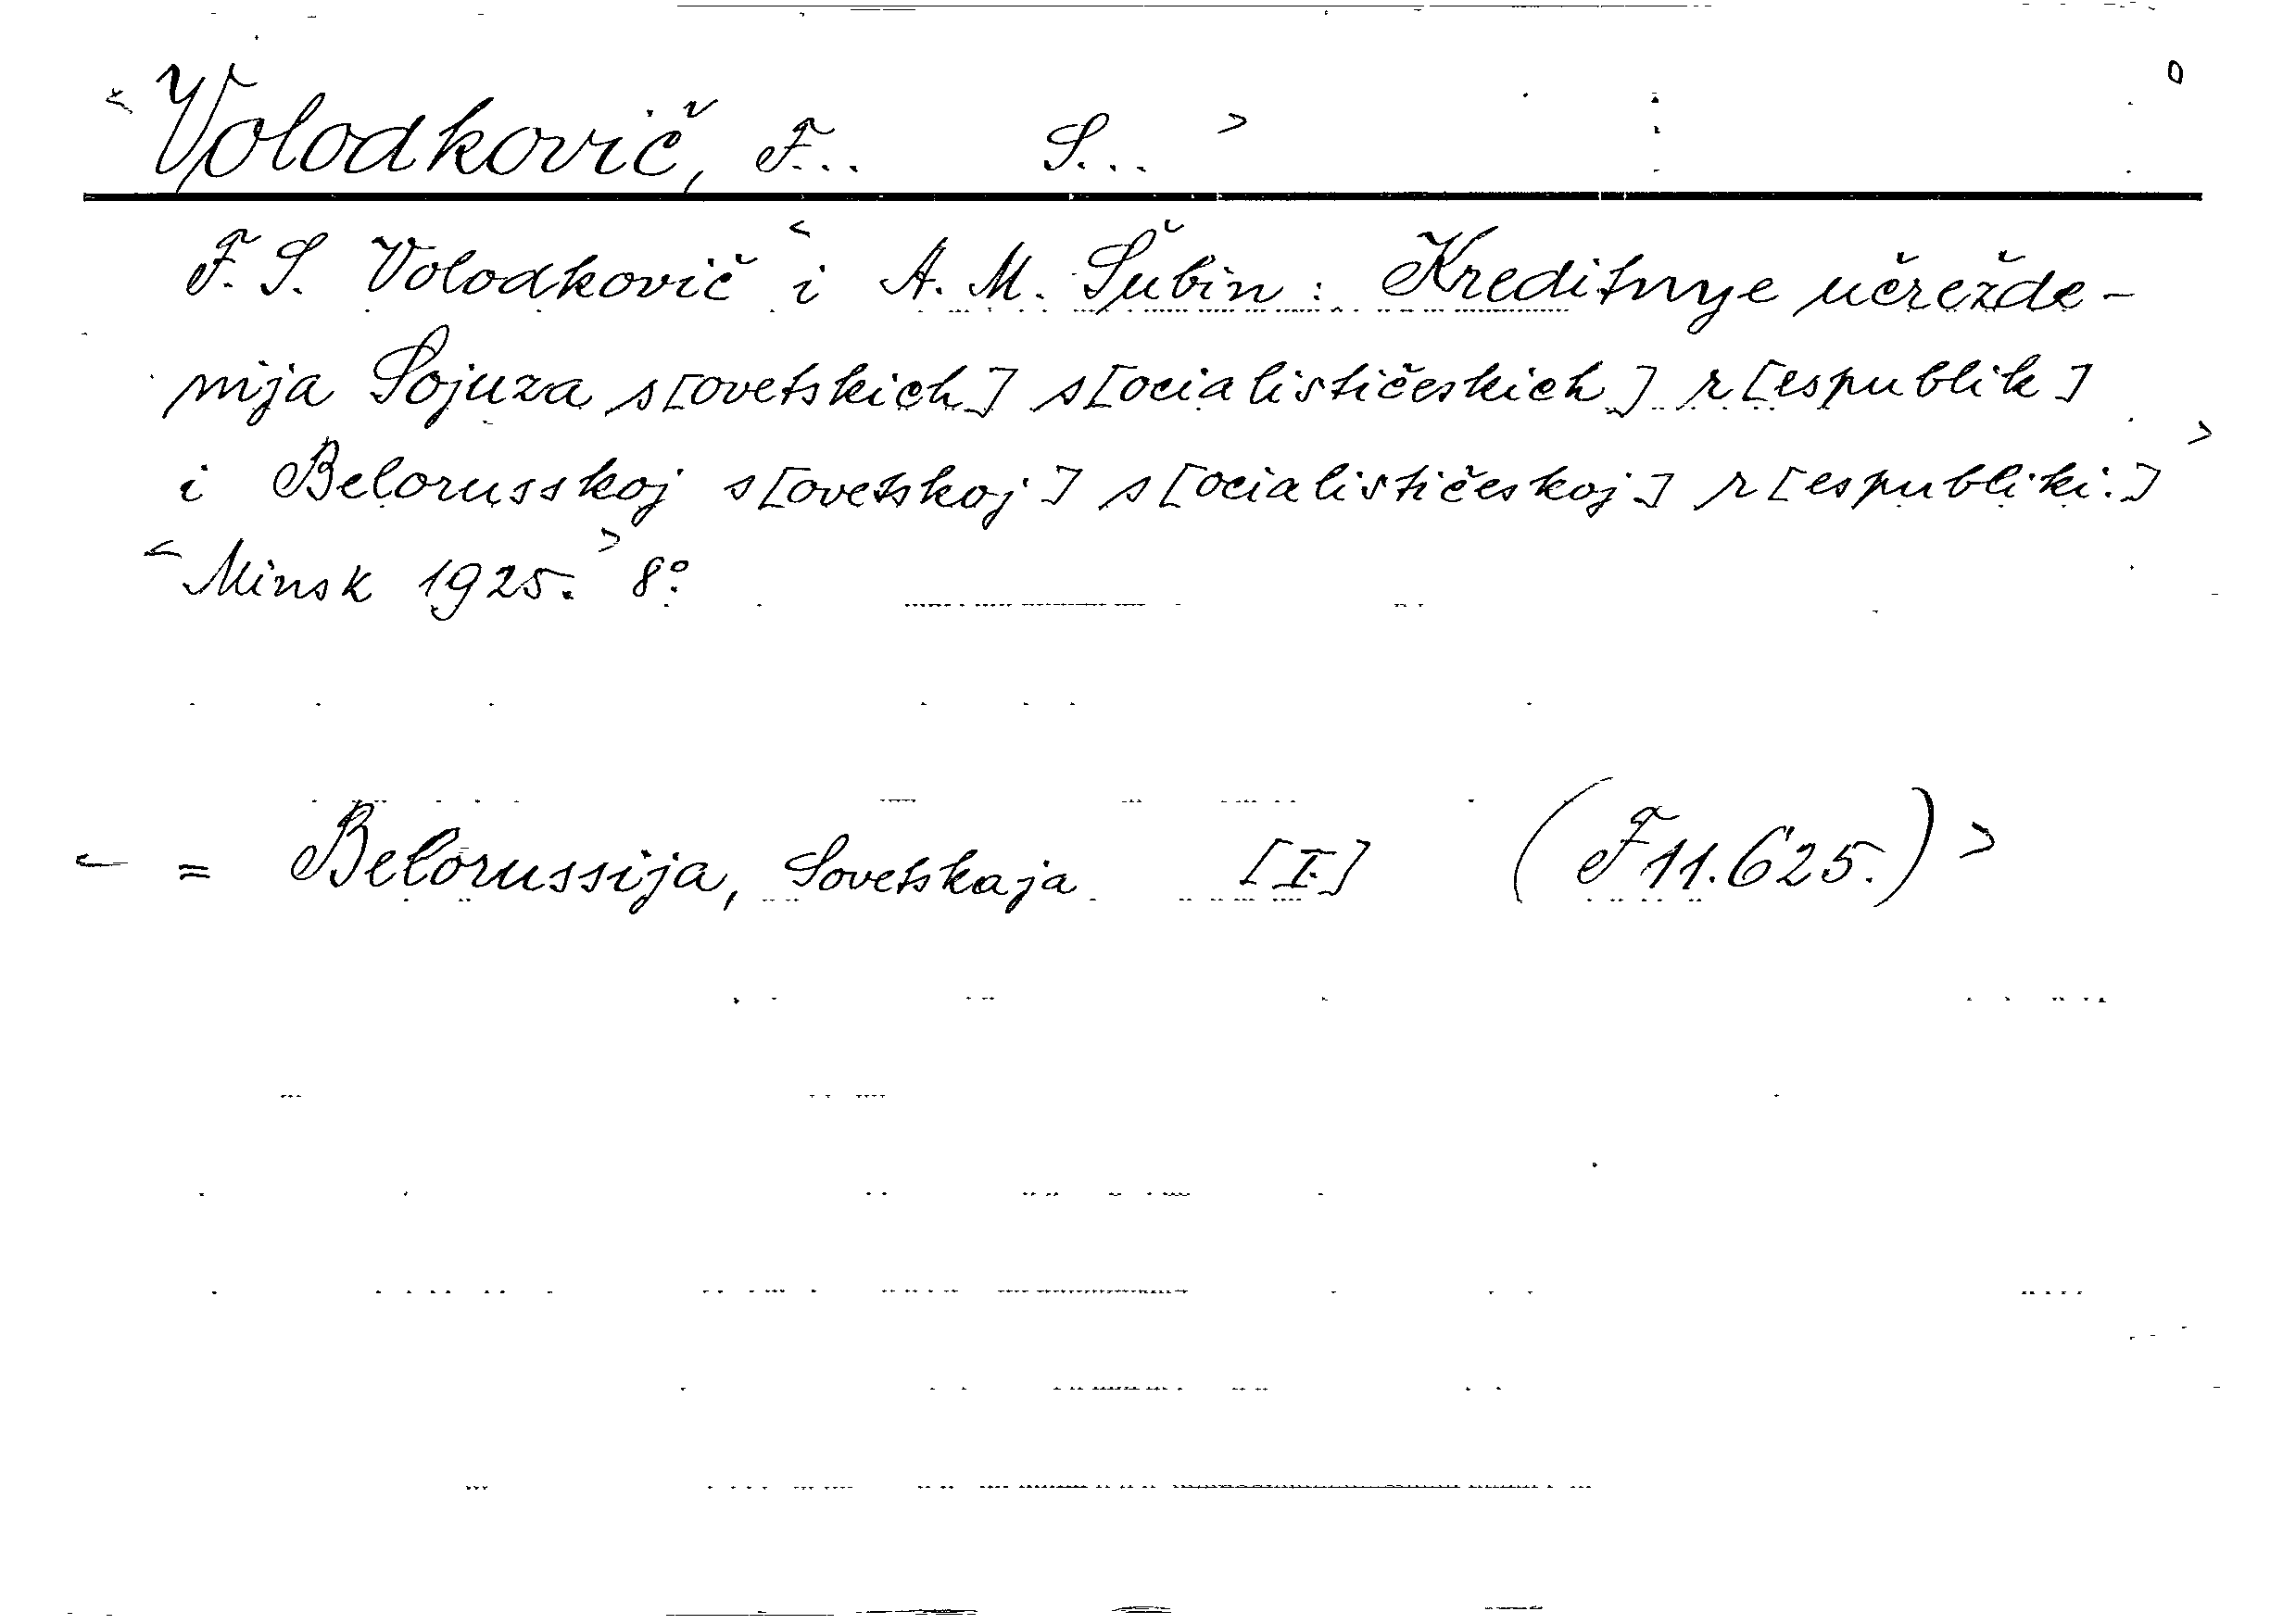 <Volodkovič, F... S...> 0
F. S. Volodkovič < i A. M. Šubin: Kreditnye učrežde-
nija Sojuza s[ovetskich] s[ocialističeskich] r[espublik]
i Belorusskoj s[ovetskoj] s[ocialističeskoj] r[espubliki.]>
<Minsk 1925.> 8°.
< = Belorussija, Sovetskaja [I.] (F 11.625.)>